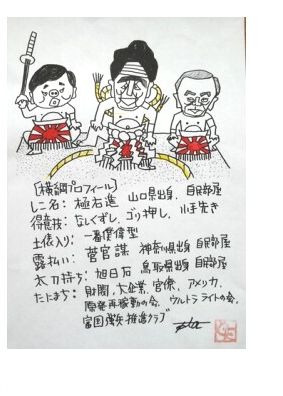 [横綱プロフィール]
しこ名: 極右進 山口県出身、自民部屋
得意技: なしくずし、ゴリ押し、小手先き
土俵入り: 一番僕偉型
露払い: 菅官謀 神奈川県出身 自民部屋
太刀持ち: 旭日石 鳥取県出身、自民部屋
たにまち: 財閥、大企業、官僚、アメリカ、
原発再稼動の会、ウルトラライトの会、
富国強兵推進クラブ